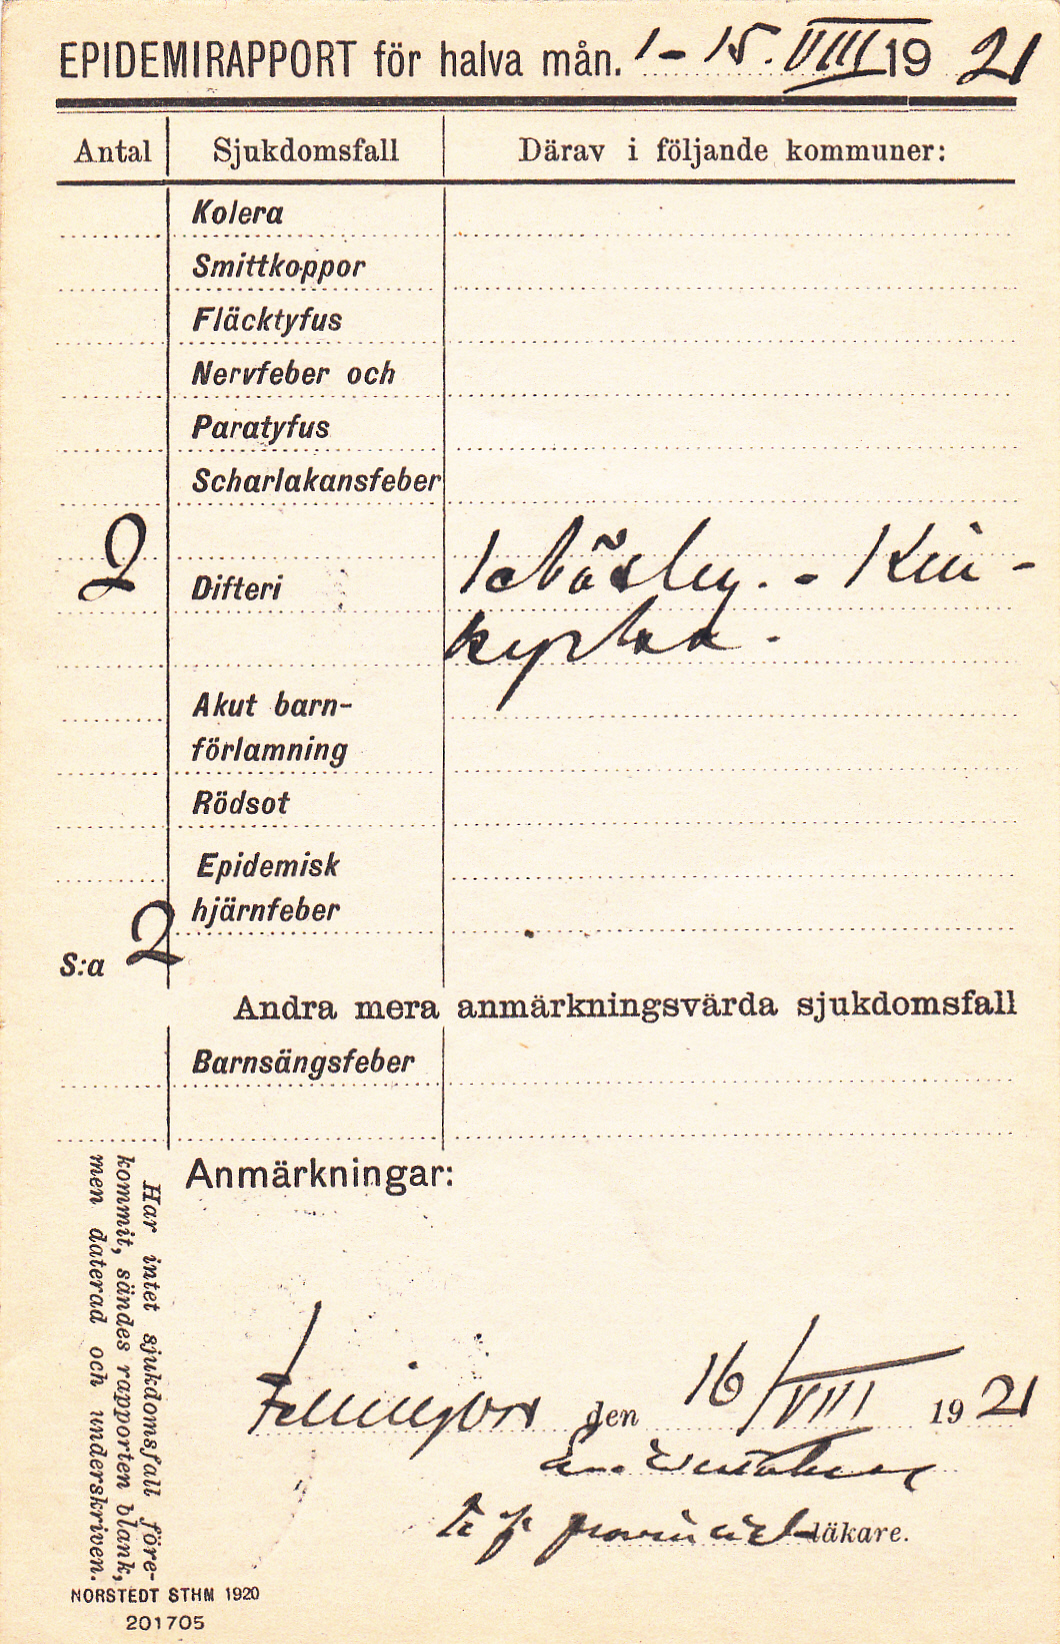 EPIDEMIRAPPORT för halva mån. 1 – 15. VIII 19 21
Antal Sjukdomsfall Därav i följande kommuner:
Kolera
Smittkoppor
Fläcktyfus
Nervfeber och
Paratyfus
Scharlakansfeber
2 Difteri
Akut barn-
förlamning
Rödsot
Epidemisk
hjärnfeber
S:a 2
Andra mera anmärkningsvärda sjukdomsfall
Barnsängsfeber
Anmärkningar:
Har intet sjukdomsfall före-
kommit, sändes rapporten blank,
men daterad och underskriven.
Fellingsbro den 16/VIII 19 21
t. f. provinsial-läkare.
NORSTEDT STHM 1920
201705